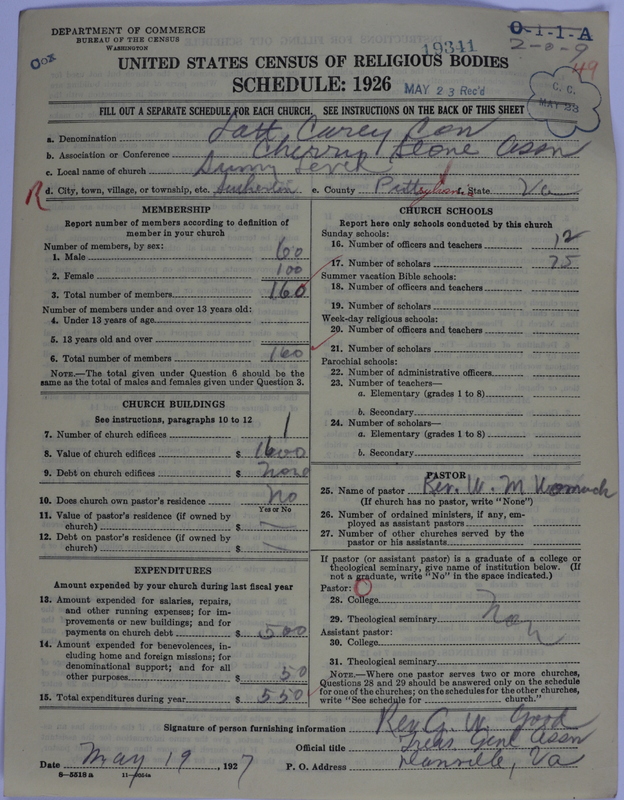 DEPARTMENT OF COMMERCE
BUREAU OF THE CENSUS
WASHINGTON
Cox
19341
0-1-1-A
2-0-9
49
UNITED STATES CENSUS OF RELIGIOUS BODIES
SCHEDULE: 1926
MAY 23 Rec'd
C. C.
MAY 23
FILL OUT A SEPARATE SCHEDULE FOR EACH CHURCH. SEE INSTRUCTIONS ON THE BACK OF THIS SHEET
a. Denomination Lott Carey Con
b. Association or Conference Cherry Stone Assn
c. Local name of church Sunny Level
R
d. City, town, village, or township, etc. Sutherlin e. County Pittsylvania f. State Va
MEMBERSHIP
Report number of members according to definition of
member in your church
Number of members, by sex:
1. Male 60
2. Female 100
3. Total number of members 160
Number of members under and over 13 years old:
4. Under 13 years of age
5. 13 years old and over
6. Total number of members 160
NOTE.—The total given under Question 6 should be the
same as the total of males and females given under Question 3.
CHURCH BUILDINGS
See instructions, paragraphs 10 to 12
7. Number of church edifices 1
8. Value of church edifices $ 1600
9. Debt on church edifices $ none
10. Does church own pastor's residence No
Yes or No
11. Value of pastor's residence (if owned by
church) $ —
12. Debt on pastor's residence (if owned by
church) $ —
EXPENDITURES
Amount expended by your church during last fiscal year
13. Amount expended for salaries, repairs,
and other running expenses; for im-
provements or new buildings; and for
payments on church debt $ 500
14. Amount expended for benevolences, in-
cluding home and foreign missions; for
denominational support; and for all
other purposes $ 50
15. Total expenditures during year $ 550
CHURCH SCHOOLS
Report here only schools conducted by this church
Sunday schools:
16. Number of officers and teachers 12
17. Number of scholars 75
Summer vacation Bible schools:
18. Number of officers and teachers
19. Number of scholars
Week-day religious schools:
20. Number of officers and teachers
21. Number of scholars
Parochial schools:
22. Number of administrative officers
23. Number of teachers—
a. Elementary (grades 1 to 8)
b. Secondary
24. Number of scholars—
a. Elementary (grades 1 to 8)
b. Secondary
PASTOR
25. Name of pastor Rev. W. M Womack
(If church has no pastor, write "None")
26. Number of ordained ministers, if any, em-
ployed as assistant pastors
27. Number of other churches served by the
pastor or his assistants
If pastor (or assistant pastor) is a graduate of a college or
theological seminary, give name of institution below. (If
not a graduate, write "No" in the space indicated.)
Pastor: O
28. College
29. Theological seminary
Assistant pastor:
30. College
31. Theological seminary
NOTE.—Where one pastor serves two or more churches,
Questions 28 and 29 should be answered only on the schedule
for one of the churches; on the schedules for the other churches,
write "See schedule for church."
Signature of person furnishing information Rev G. W. Good
Official title Treas Genl Assn
Date May 19, 1927 P. O. Address Danville, Va